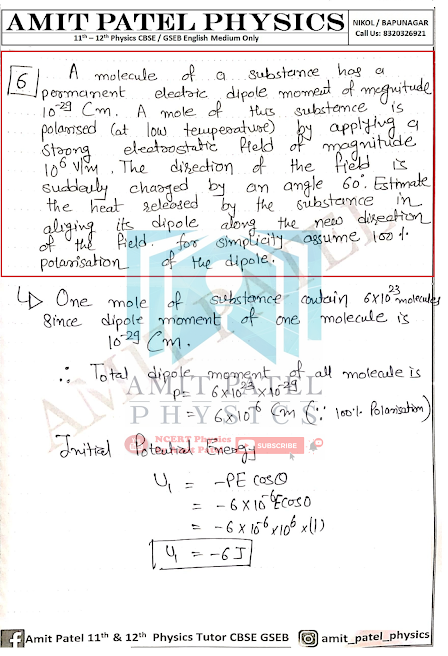 AMIT PATEL PHYSICS
11th – 12th Physics CBSE / GSEB English Medium Only
NIKOL / BAPUNAGAR
Call Us: 8320326921
6 A molecule of a substance has a
permanent electric dipole moment of magnitude
10⁻²⁹ Cm. A mole of this substance is
polarised (at low temperature) by applying a
strong electrostatic field of magnitude
10⁶ V/m. The direction of the field is
suddenly changed by an angle 60°. Estimate
the heat released by the substance in
aliging its dipole along the new direction
of the field. for simplicity assume 100 %
polarisation of the dipole.
One mole of substance contain 6×10²³ molecules
Since dipole moment of one molecule is
10⁻²⁹ Cm.
∴ Total dipole moment of all molecule is
P = 6×10²³ × 10⁻²⁹
= 6×10⁻⁶ Cm (∵ 100% Polarisation)
Initial Potential Energy
U₁ = -PE cosθ
= -6 × 10⁻⁶ E cos0
= -6 × 10⁻⁶ × 10⁶ × (1)
U₁ = -6 J
AMIT PATEL
PHYSICS
NCERT Physics
SUBSCRIBE
AMIT PATEL
Amit Patel 11th & 12th Physics Tutor CBSE GSEB
amit_patel_physics